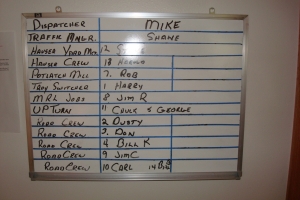 DISPATCHER MIKE
TRAFFIC MNGR. SHANE
HAUSER YARD MTR. 12
HAUSER CREW 13
POTLATCH MILL 7. ROB
TROY SWITCHER 1 HARRY
MRL JOBS 8 JIM R
UP TURN 11 CHUCK & GEORGE
ROAD CREW 2 DUSTY
ROAD CREW 3. DON
ROAD CREW 4 BILL K
ROAD CREW 9 JIM C
ROAD CREW 10 CARL 14